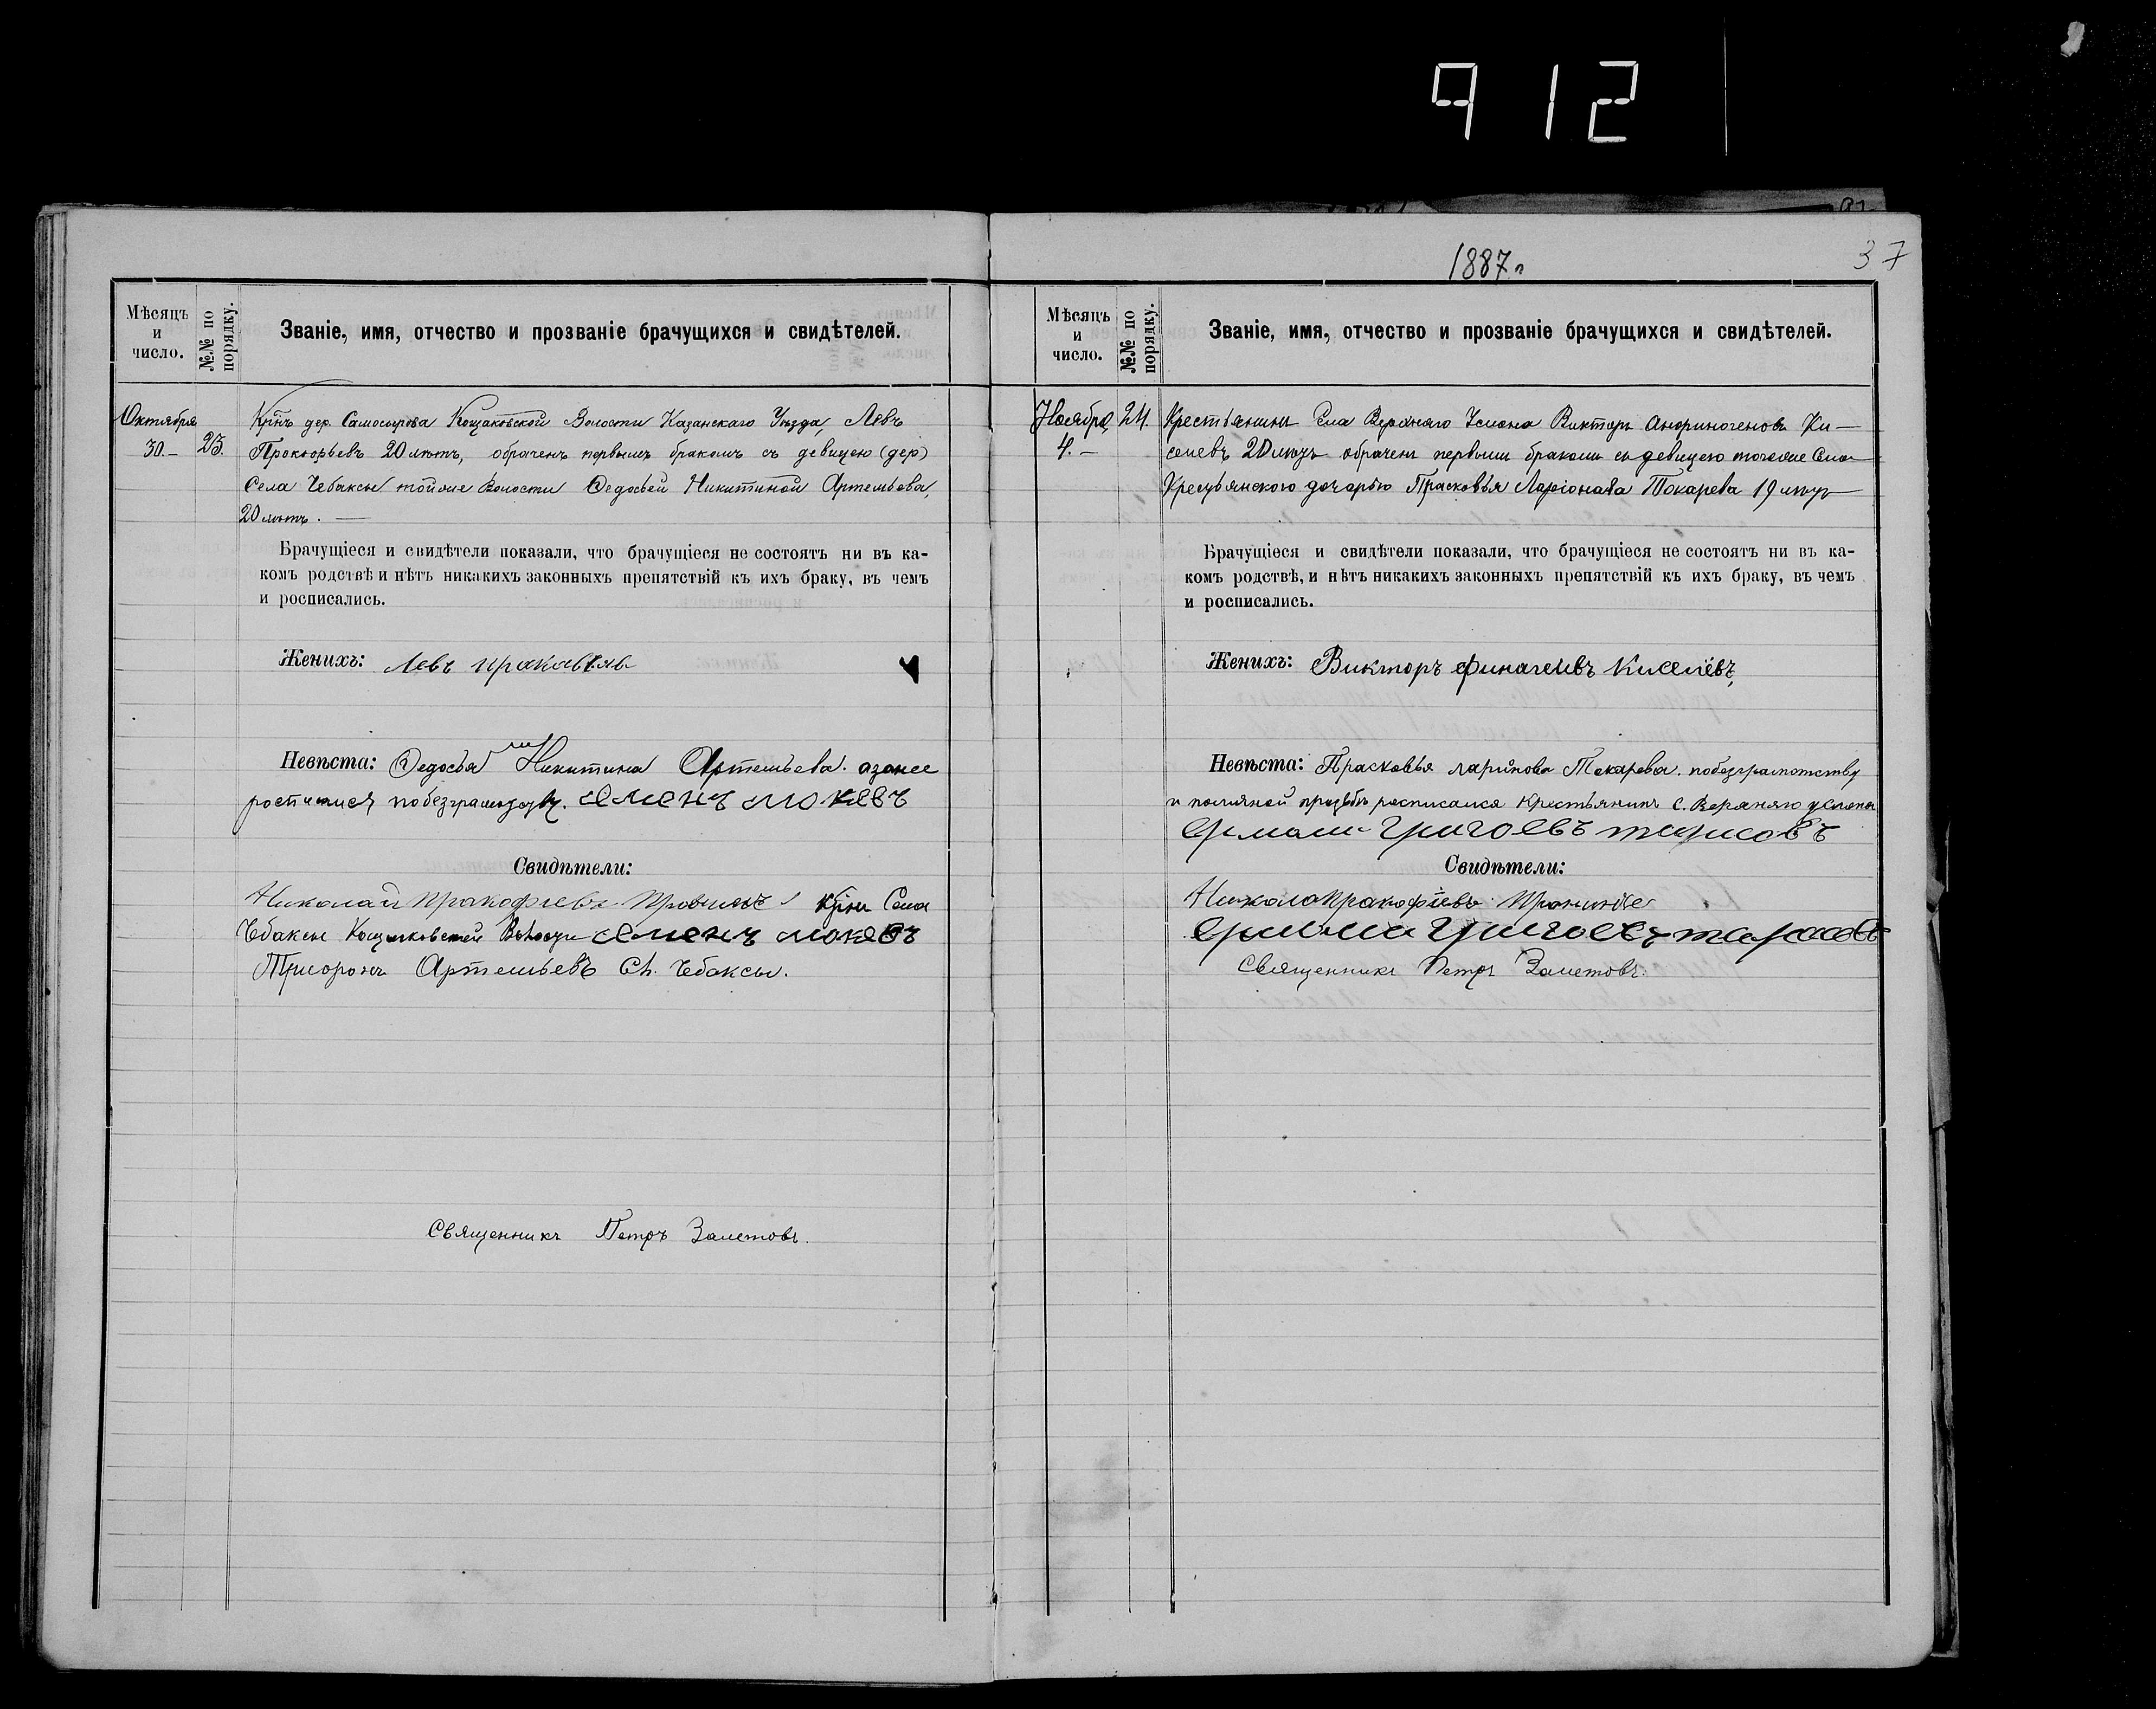 912
1887 г.
37
Мѣсяцъ и число.
№№ по порядку.
Званіе, имя, отчество и прозваніе брачущихся и свидѣтелей.
Октября 30.—
23.
Крнъ дер. Самосырова Кощаковской Волости Казанскаго Уѣзда, Левъ
Прокофьевъ 20 лѣтъ, обраченъ первымъ бракомъ съ девицею (дер)
Села Чебаксы тойже Волости Ѳедосьей Никитиной Артемьева,
20 лѣтъ. —
Брачущіеся и свидѣтели показали, что брачущіеся не состоятъ ни въ ка-
комъ родствѣ и нѣтъ никакихъ законныхъ препятствій къ ихъ браку, въ чемъ
и росписались.
Женихъ: Левъ
Невѣста: Ѳедосья Никитина Артемьева. азанее
семенъ мокѣевъ
Свидѣтели:
Николай Пракофіевъ Крнъ Села
Чбаксы Кощаковской Волости семенъ
Артемьевъ Сѣ. Чбаксы.
Священникъ Петръ Залетовъ.
Мѣсяцъ и число.
№№ по порядку.
Званіе, имя, отчество и прозваніе брачущихся и свидѣтелей.
Ноября 4.—
24.
Крестьянинъ Села Верхняго Услона Викторъ Ки-
селевъ 20 лѣтъ обраченъ первымъ бракомъ съ девицею тогоже Села
Крестьянскою дочерью Прасковья Ларіонова Токарева 19 лѣтъ
Брачущіеся и свидѣтели показали, что брачущіеся не состоятъ ни въ ка-
комъ родствѣ, и нѣтъ никакихъ законныхъ препятствій къ ихъ браку, въ чемъ
и росписались.
Женихъ: Викторъ финагеивъ Киселёвъ,
Невѣста: Прасковья ларинова Токарева. побезграмотству
и поличной прозьбѣ росписался Крестьянинъ с. Верхняго услона
григоевъ
Свидѣтели:
Никола Пракофіевъ
григоевъ
Священникъ Петръ Залетовъ.